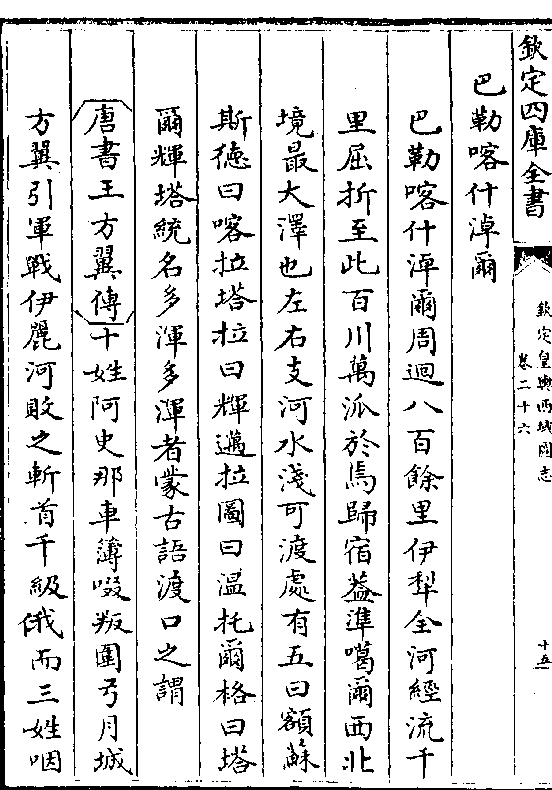 欽定四庫全書
欽定皇輿西域圖志
卷二十六
十五
巴勒喀什淖爾
巴勒喀什淖爾周迴八百餘里伊犁全河經流千
里屈折至此百川萬派於焉歸宿蓋準噶爾西北
境最大澤也左右支河水淺可渡處有五曰額蘇
斯德曰喀拉塔拉曰輝邁拉圖曰温托爾格曰塔
爾輝塔統名多渾多渾者蒙古語渡口之謂
唐書王方翼傳十姓阿史那車簿啜叛圍弓月城
方翼引軍戰伊麗河敗之斬首千級俄而三姓咽